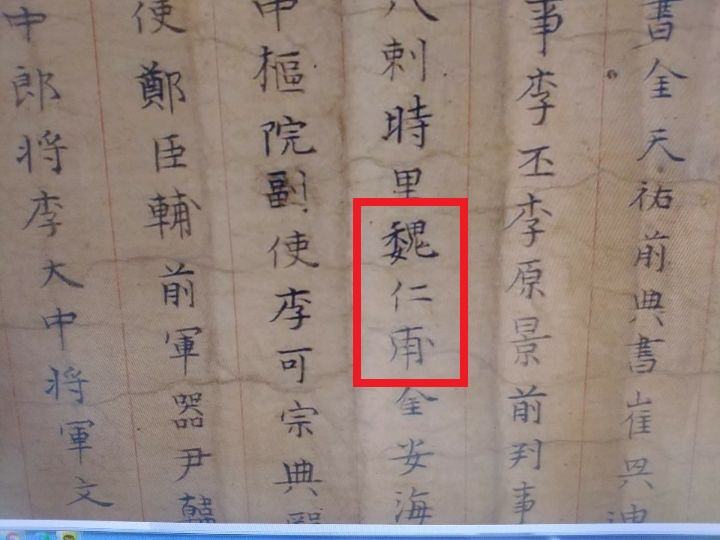 書金天祐前典書崔㒷
事李丕李原景前判事
八刺時里魏仁甫金安海
申樞院副使李可宗典
使鄭臣輔前軍器尹韓
中郎将李大中将軍文